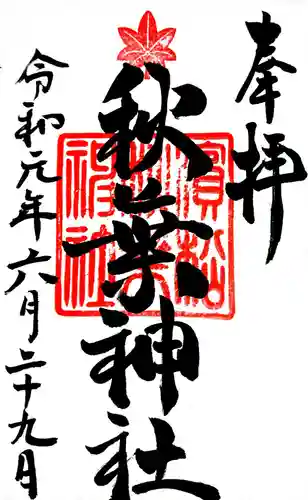 奉拝
秋葉神社
令和元年六月二十九日
濱松
神社